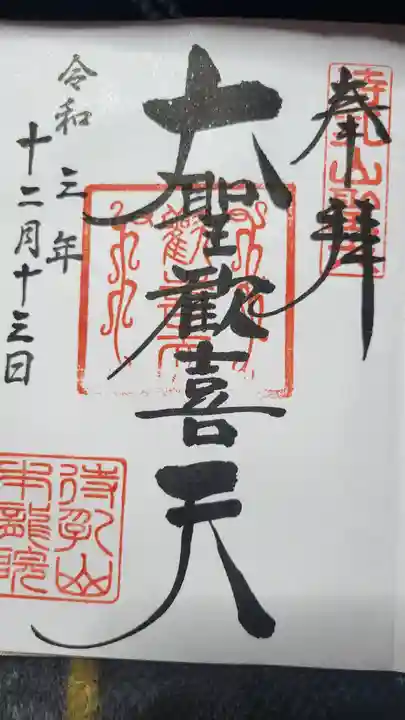 奉拝
待乳山聖天
大聖歓喜天
令和三年
十二月十三日
待乳山
本龍院